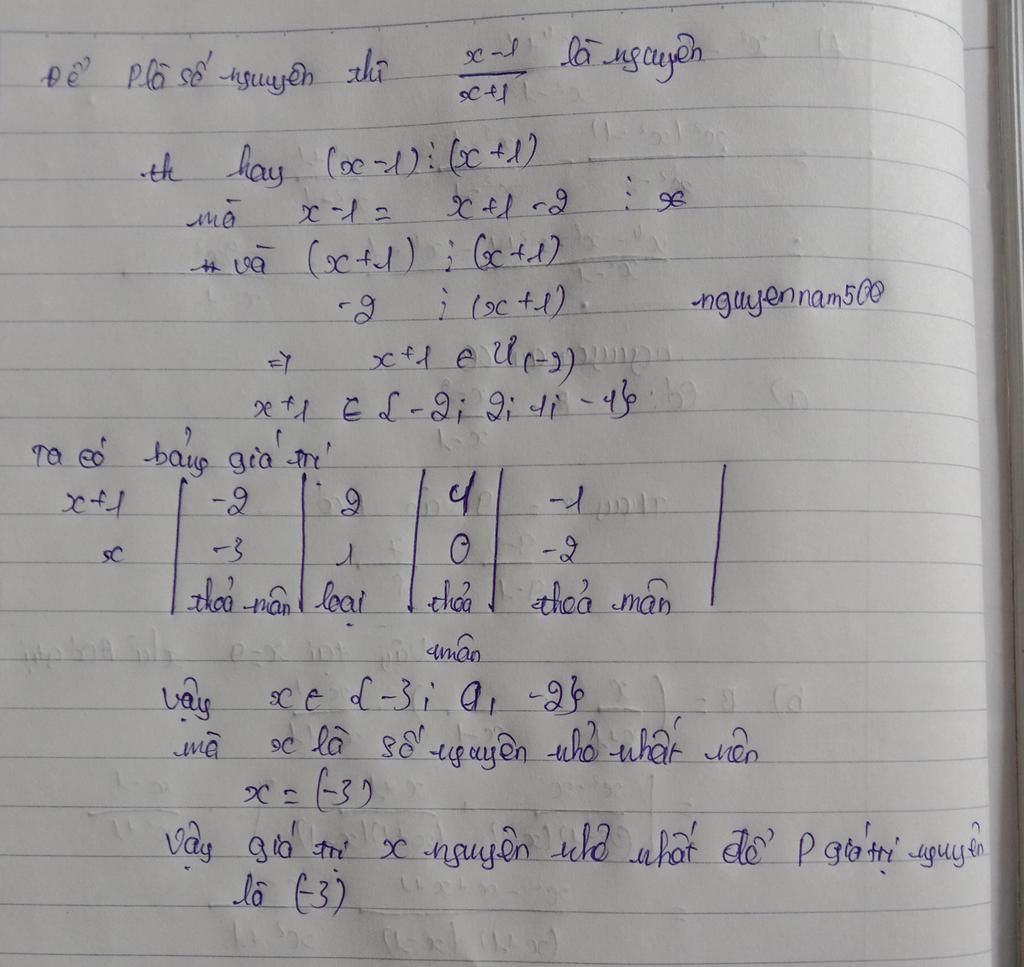 Để P là số nguyên thì x-1/x+1 là nguyên
hay (x-1) ⋮ (x+1)
mà x-1 = x+1-2 ⋮
và (x+1) ⋮ (x+1)
-2 ⋮ (x+1)
nguyennam500
=> x+1 ∈ Ư(-2)
x+1 ∈ {-2; 2; 1; -1}
Ta có bảng giá trị
x+1 | -2 | 2 | 1 | -1 |
x | -3 | 1 | 0 | -2
| thoả mãn | loại | thoả | thoả mãn
mãn
Vậy x ∈ {-3; 0; -2}
mà x là số nguyên nhỏ nhất nên
x = (-3)
Vậy giá trị x nguyên nhỏ nhất để P giá trị nguyên
là (-3)